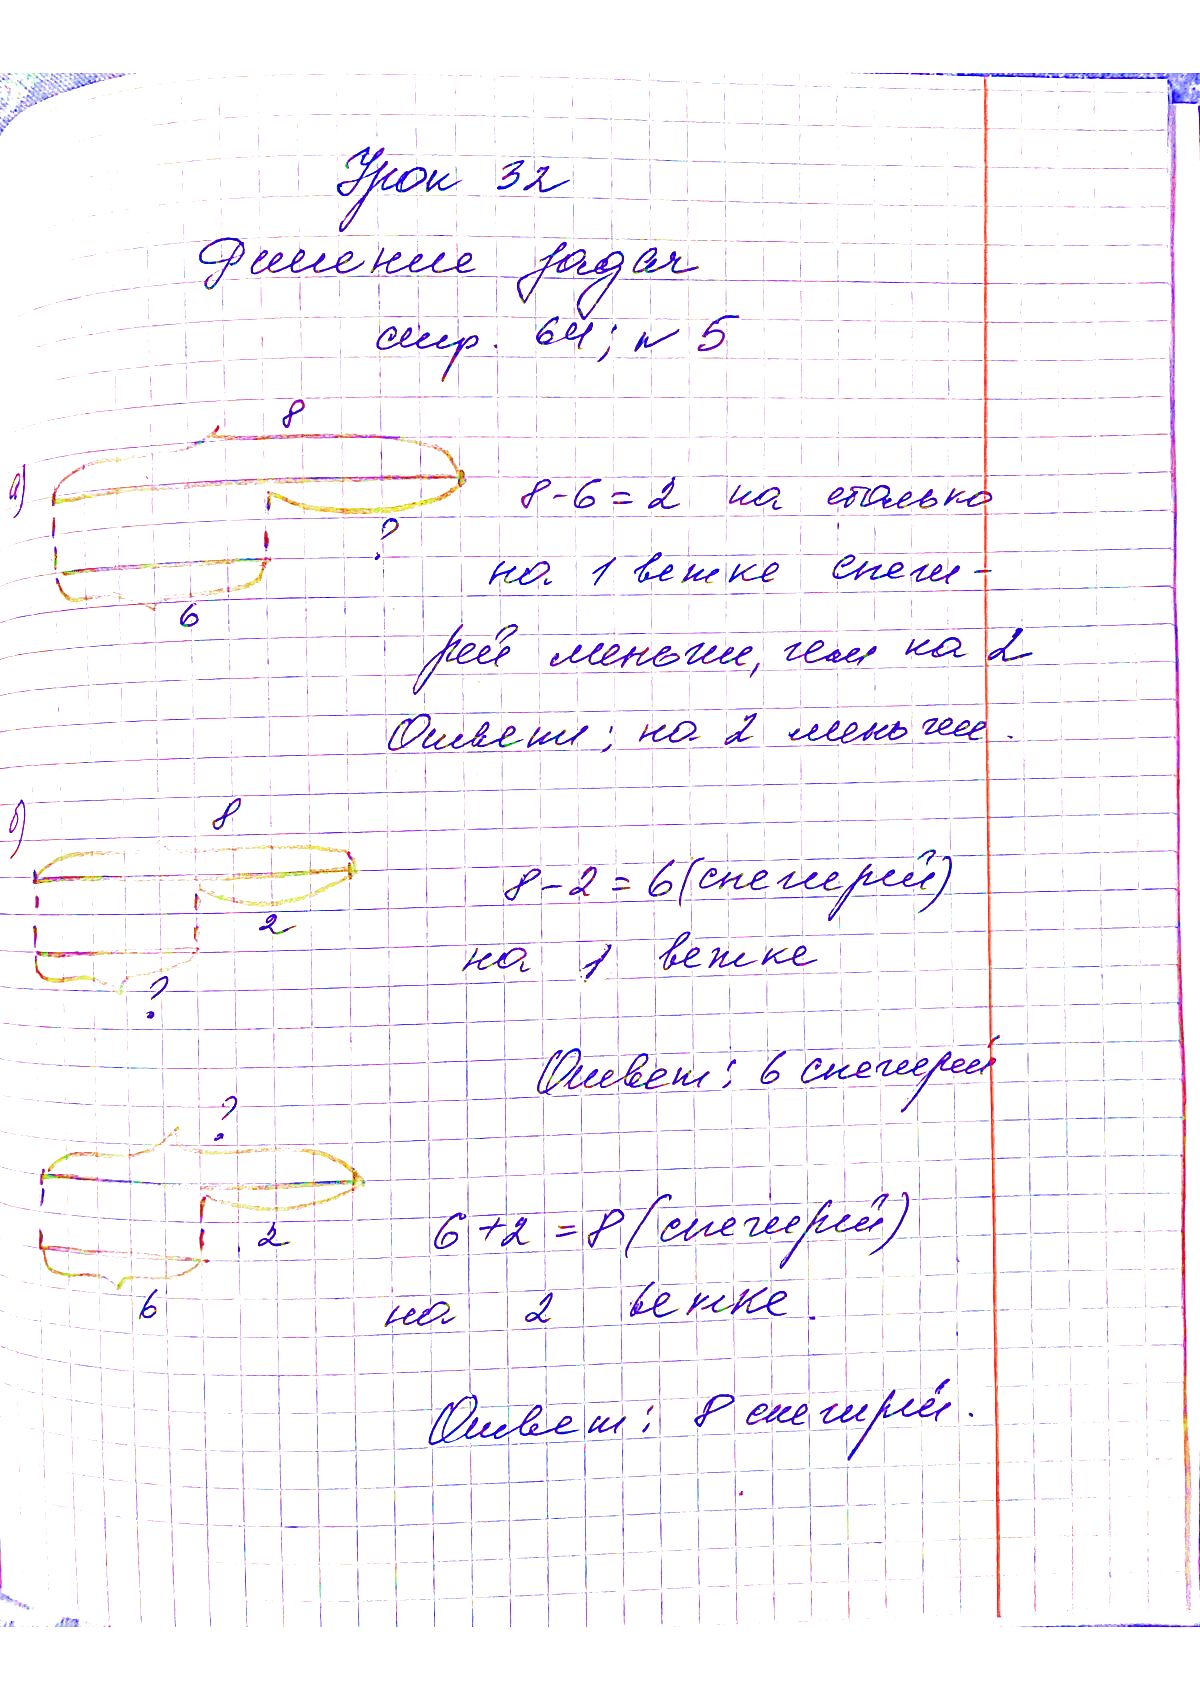 Урок 32
Решение задач
стр. 64; № 5
8
а)
8-6=2 на столько
?
на 1 ветке снеги-
6
рей меньше, чем на 2
Ответ: на 2 меньше.
б)
8
8-2=6(снегирей)
2
на 1 ветке
?
Ответ: 6 снегирей
?
6+2=8(снегирей)
2
6
на 2 ветке.
Ответ: 8 снегирей.